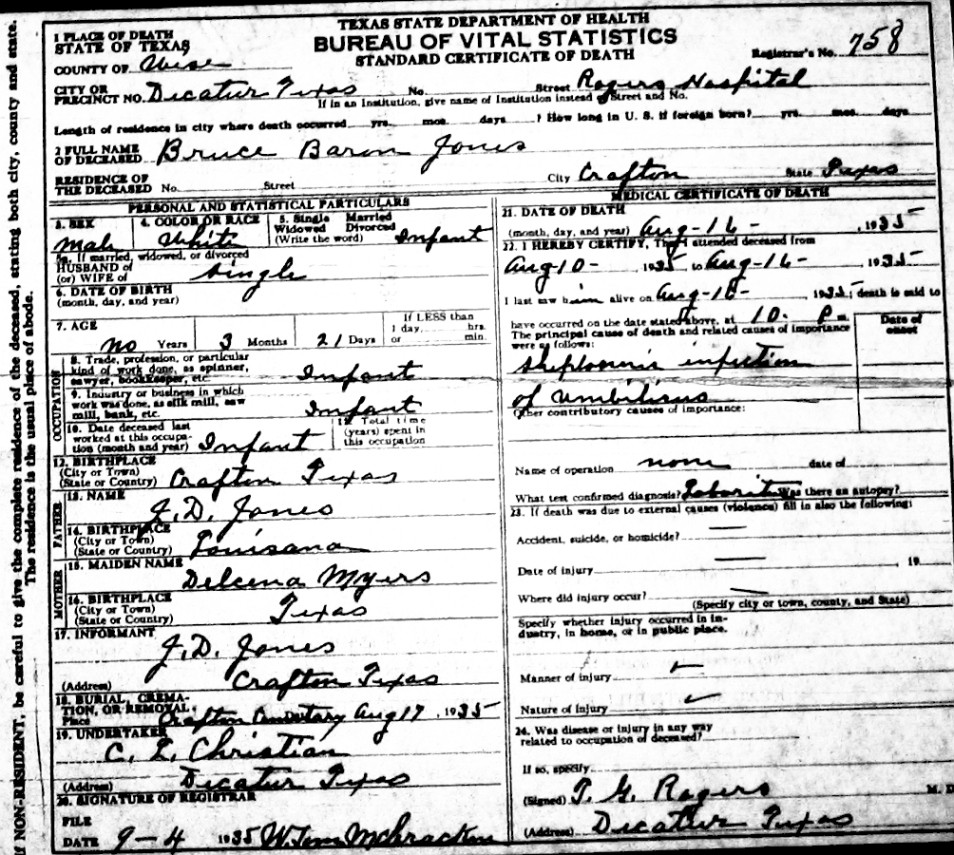 TEXAS STATE DEPARTMENT OF HEALTH
BUREAU OF VITAL STATISTICS
STANDARD CERTIFICATE OF DEATH
Registrar's No. 758
1 PLACE OF DEATH
STATE OF TEXAS
COUNTY OF Wise
CITY OR PRECINCT NO. Decatur Texas No. Street Rogers Hospital
If in an Institution, give name of Institution instead of Street and No.
Length of residence in city where death occurred yrs. mos. days ? How long in U. S. if foreign born? yrs. mos. days
2 FULL NAME OF DECEASED Bruce Baron Jones
RESIDENCE OF THE DECEASED No. Street City Crafton State Texas
PERSONAL AND STATISTICAL PARTICULARS
3. SEX Male
4. COLOR OR RACE White
5. Single Married Widowed Divorced (Write the word) Infant
5a. If married, widowed, or divorced
HUSBAND of (or) WIFE of Single
6. DATE OF BIRTH
(month, day, and year)
7. AGE
no Years 3 Months 21 Days
If LESS than 1 day, hrs. or min.
OCCUPATION
8. Trade, profession, or particular kind of work done, as spinner, sawyer, bookkeeper, etc. Infant
9. Industry or business in which work was done, as silk mill, saw mill, bank, etc. Infant
10. Date deceased last worked at this occupation (month and year) Infant
11. Total time (years) spent in this occupation
12. BIRTHPLACE
(City or Town)
(State or Country) Crafton Texas
FATHER
13. NAME J. D. Jones
14. BIRTHPLACE
(City or Town)
(State or Country) Louisana
MOTHER
15. MAIDEN NAME Delcena Myers
16. BIRTHPLACE
(City or Town)
(State or Country) Texas
17. INFORMANT J. D. Jones
(Address) Crafton Texas
18. BURIAL, CREMATION, OR REMOVAL
Place Crafton Aug 17, 1935
19. UNDERTAKER C. L. Christian
(Address) Decatur Texas
20. SIGNATURE OF REGISTRAR
FILE DATE 9-4 1935 W. Tom McCracken
MEDICAL CERTIFICATE OF DEATH
21. DATE OF DEATH
(month, day, and year) Aug-16-, 1935
22. I HEREBY CERTIFY, That I attended deceased from
Aug-10- 1935, to Aug-16-, 1935
I last saw him alive on Aug-16-, 1935; death is said to
have occurred on the date stated above, at 10- P m.
The principal cause of death and related causes of importance were as follows:
Date of onset
infection
of
Other contributory causes of importance:
Name of operation none date of
What test confirmed diagnosis? Was there an autopsy?
23. If death was due to external causes (violence) fill in also the following:
Accident, suicide, or homicide? —
Date of injury — , 19
Where did injury occur? —
(Specify city or town, county, and State)
Specify whether injury occurred in industry, in home, or in public place.
Manner of injury
Nature of injury
24. Was disease or injury in any way related to occupation of deceased?
If so, specify
(Signed) T. G. Rogers M. D.
(Address) Decatur Texas
If NON-RESIDENT, be careful to give the complete residence of the deceased, stating both city, county and state.
The residence is the usual place of abode.